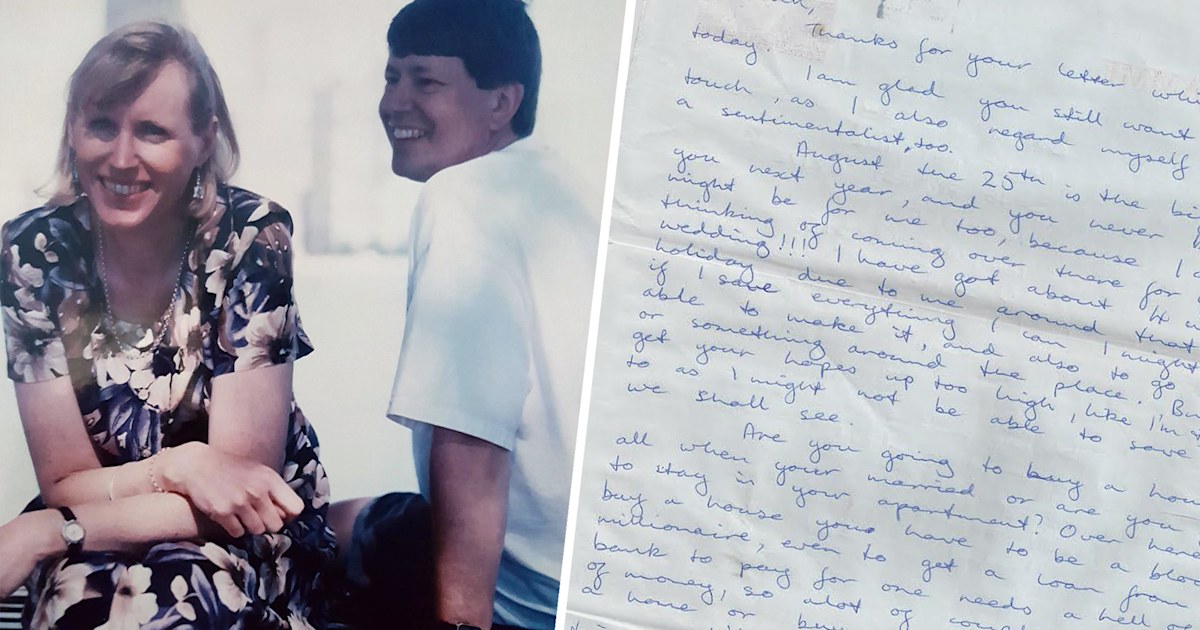 Thanks for your letter
today. I am glad you still want
touch, as I also regard myself
a sentimentalist, too.
August the 25th is the
you next year, and you never
might be for me too, because I
thinking of coming over there for
wedding!!! I have got about 4
holiday due to me around that
if I save everything I can I might
able to make it, and also to go
or something around the place. Bu
get your hopes up too high, like I'm
to as I might not be able to save
we shall see.
Are you going to buy a hou
all when your married or are you
to stay in your apartment? Over here
buy a house your have to be a bloo
millionaire, even to get a loan from
bank to pay for one needs a hell o
of money, so alot of coupl
a home or buy